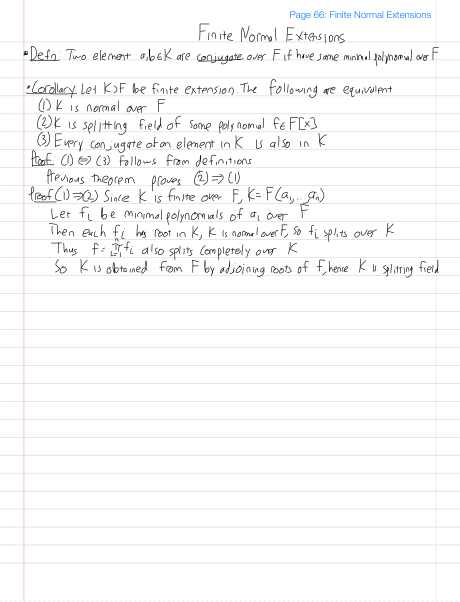 Page 66: Finite Normal Extensions
Finite Normal Extensions
• Defn: Two element a,b∈K are conjugate over F if have same minimal polynomial over F
• Corollary Let K⊃F be finite extension. The following are equivalent
(1) K is normal over F
(2) K is splitting field of some polynomial f∈F[x]
(3) Every conjugate of an element in K is also in K
Proof: (1) ⇔ (3) follows from definitions
Previous theorem proves (2) ⇒ (1)
Proof (1) ⇒ (2) Since K is finite over F, K = F(a₁, ... aₙ)
Let fᵢ be minimal polynomials of aᵢ over F
Then each fᵢ has root in K, K is normal over F, so fᵢ splits over K
Thus f = ∏ᵢ₌₁ⁿ fᵢ also splits completely over K
So K is obtained from F by adjoining roots of f, hence K is splitting field